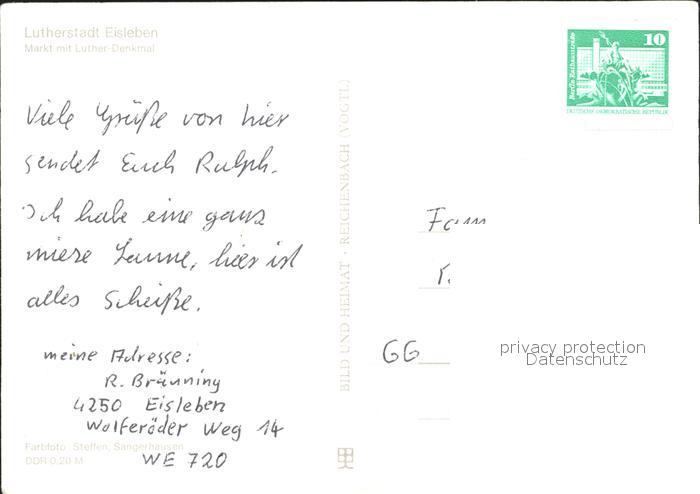 Lutherstadt Eisleben
Markt mit Luther-Denkmal
Viele Grüße von hier
sendet Euch Ralph.
Ich habe eine ganz
miese Laune, hier ist
alles Scheiße.
meine Adresse:
R. Bräunning
4250 Eisleben
Wolferöder Weg 14
WE 720
Farbfoto: Steffen, Sangerhausen
DDR 0,20 M
BILD UND HEIMAT · REICHENBACH (VOGTL)
10
Berlin, Rathausstraße
DEUTSCHE DEMOKRATISCHE REPUBLIK
Fam
GG
privacy protection
Datenschutz